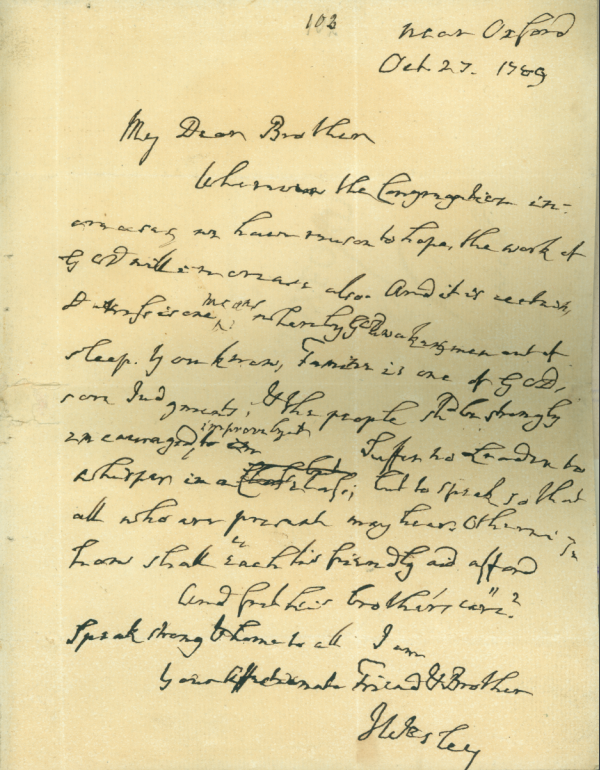 102
near Oxford
Oct. 27. 1789
My Dear Brother
Whenever the Congregation in-
creases, we have reason to hope, the work of
GOD will increase also. And it is certain,
Distress is one means whereby GOD wakens men out of
sleep. You know, Famine is one of GOD's
sore Judgments, & the people shd be strongly
encouraged, to improve by it Suffer no Leader to
whisper in a Class; but to speak so that
all who are present may hear. Otherwise
how shall "Each his friendly aid afford
And feel his brother's care"?
Speak strong & home to all I am
Your Affectionate Friend & Brother
J Wesley